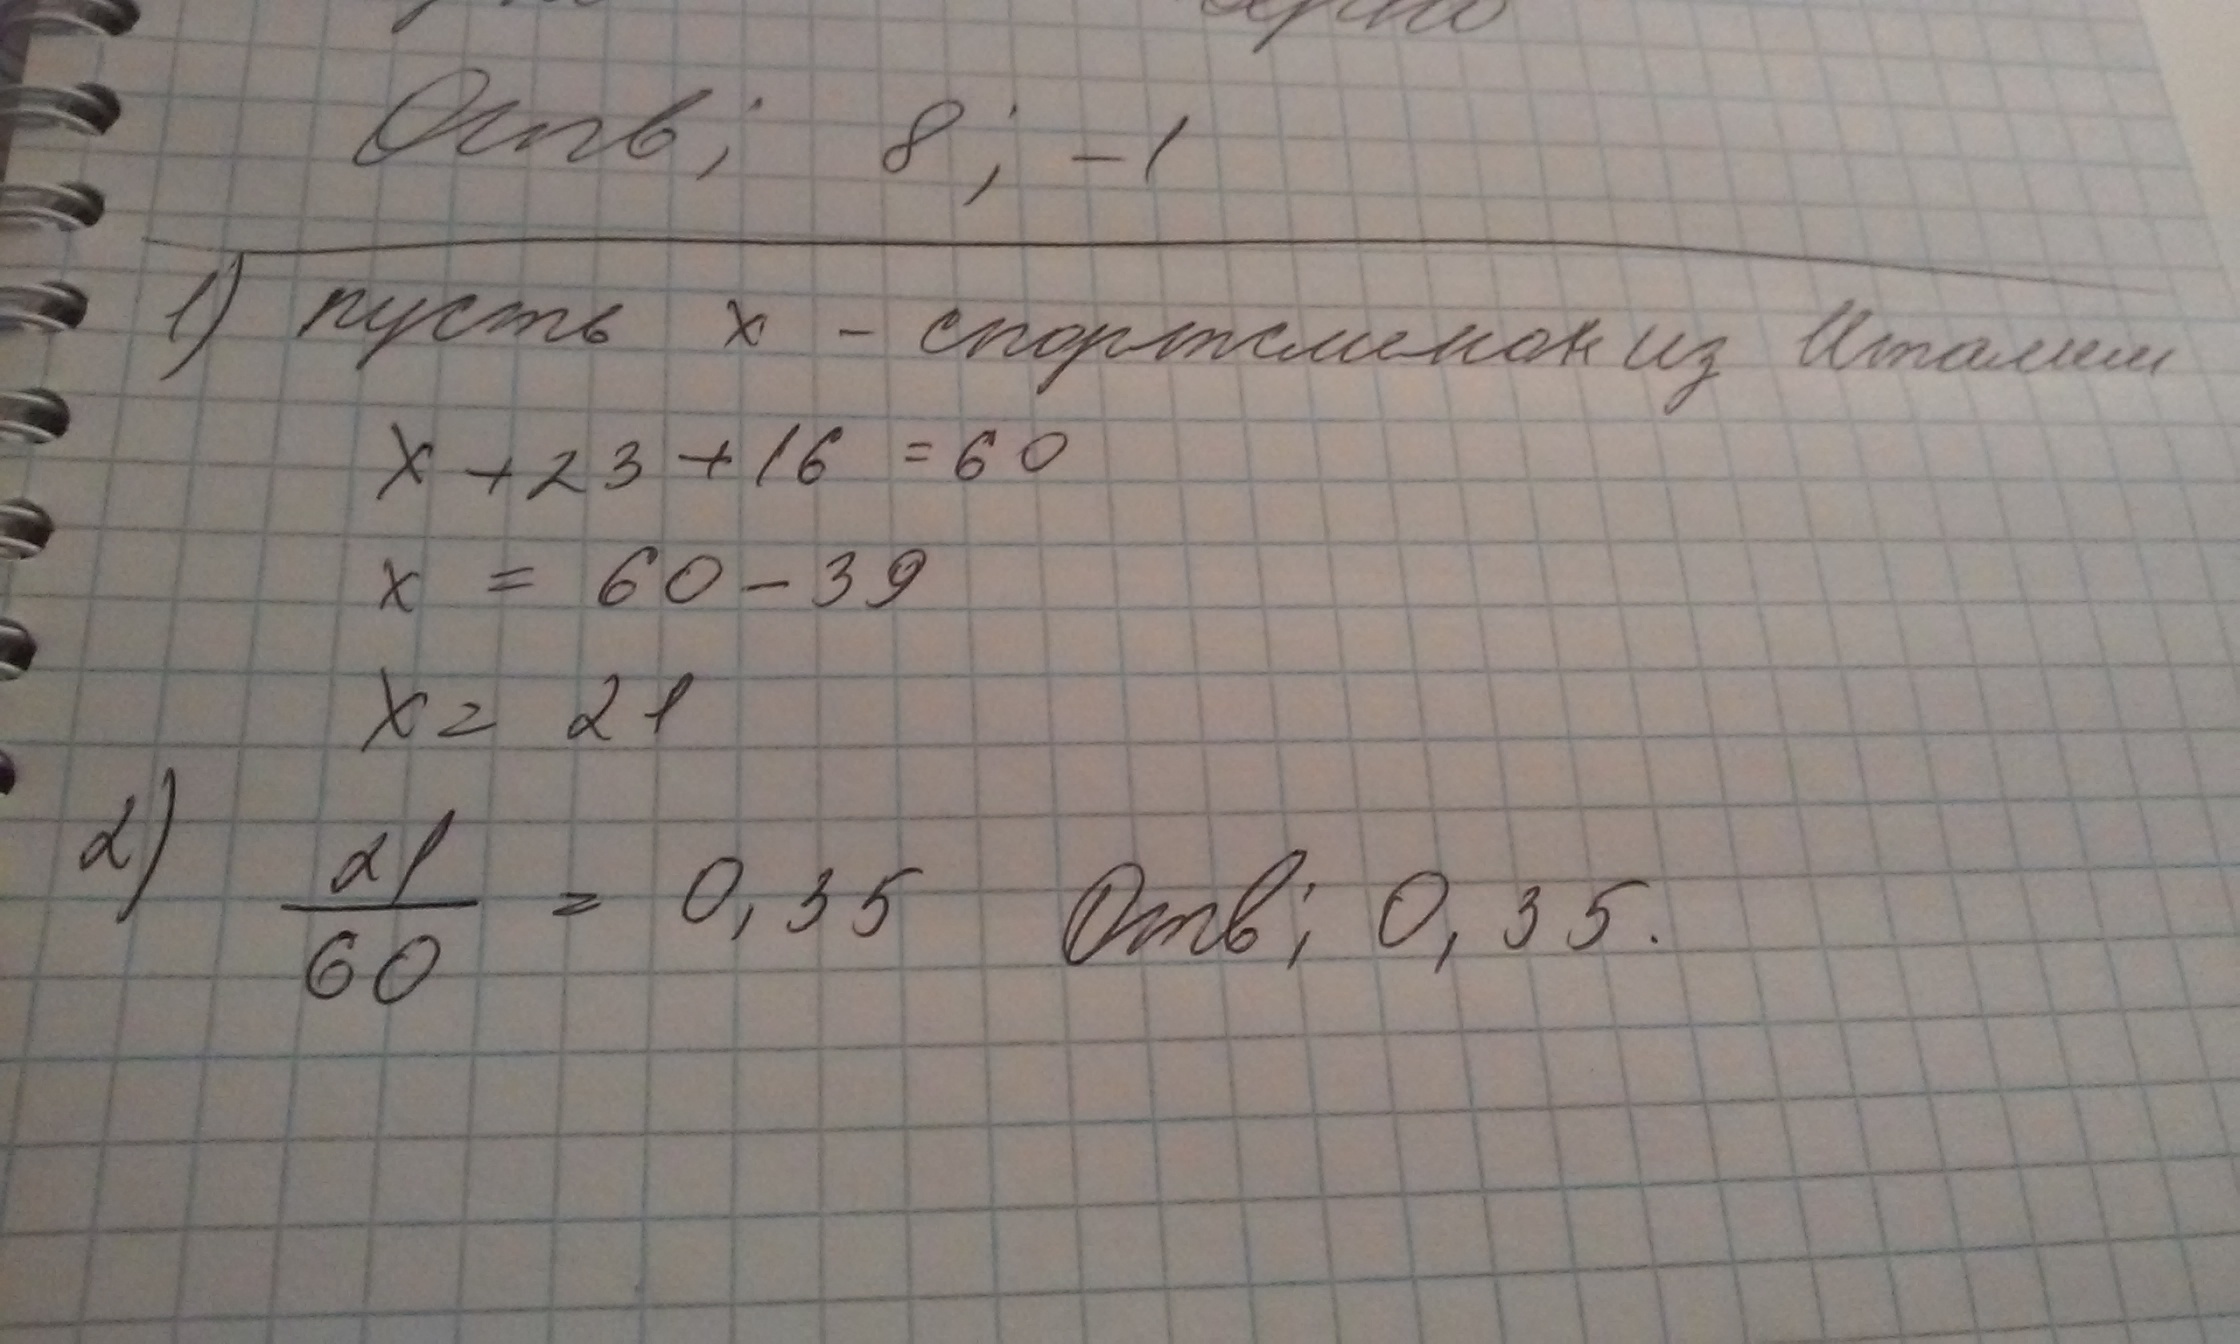 Отв; 8; -1
1) пусть x - спортсменок из Италии
x + 23 + 16 = 60
x = 60 - 39
x = 21
2) 21/60 = 0,35 Отв; 0,35.